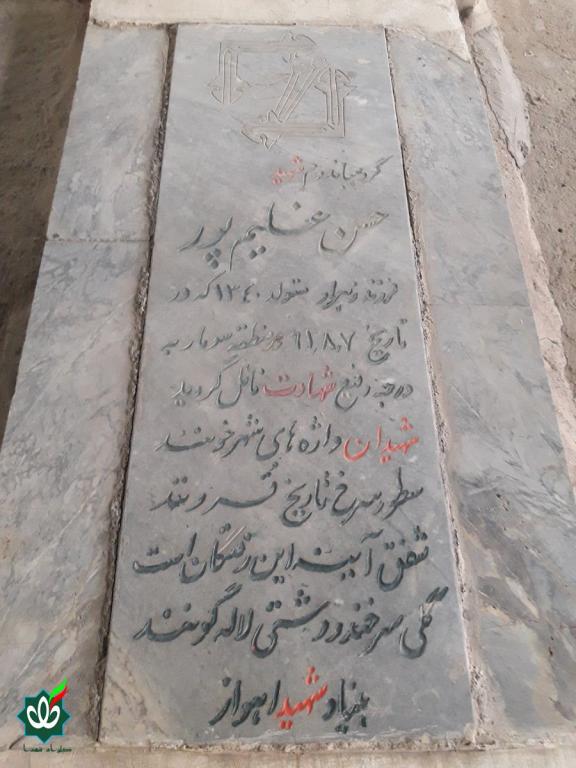 گروهبان دوم شهید
حسن علیم پور
فرزند متولد ۱۳۴۰ که در
تاریخ ۶۱،۸،۷ در منطقه سومار به
درجه رفیع شهادت نائل گردید
شهیدان واژه های شهر خونند
سطور سرخ تاریخ قرونند
شفق آیینه این رفتگان است
گلی سر خفته در دشتی لاله گونند
بنیاد شهید اهواز